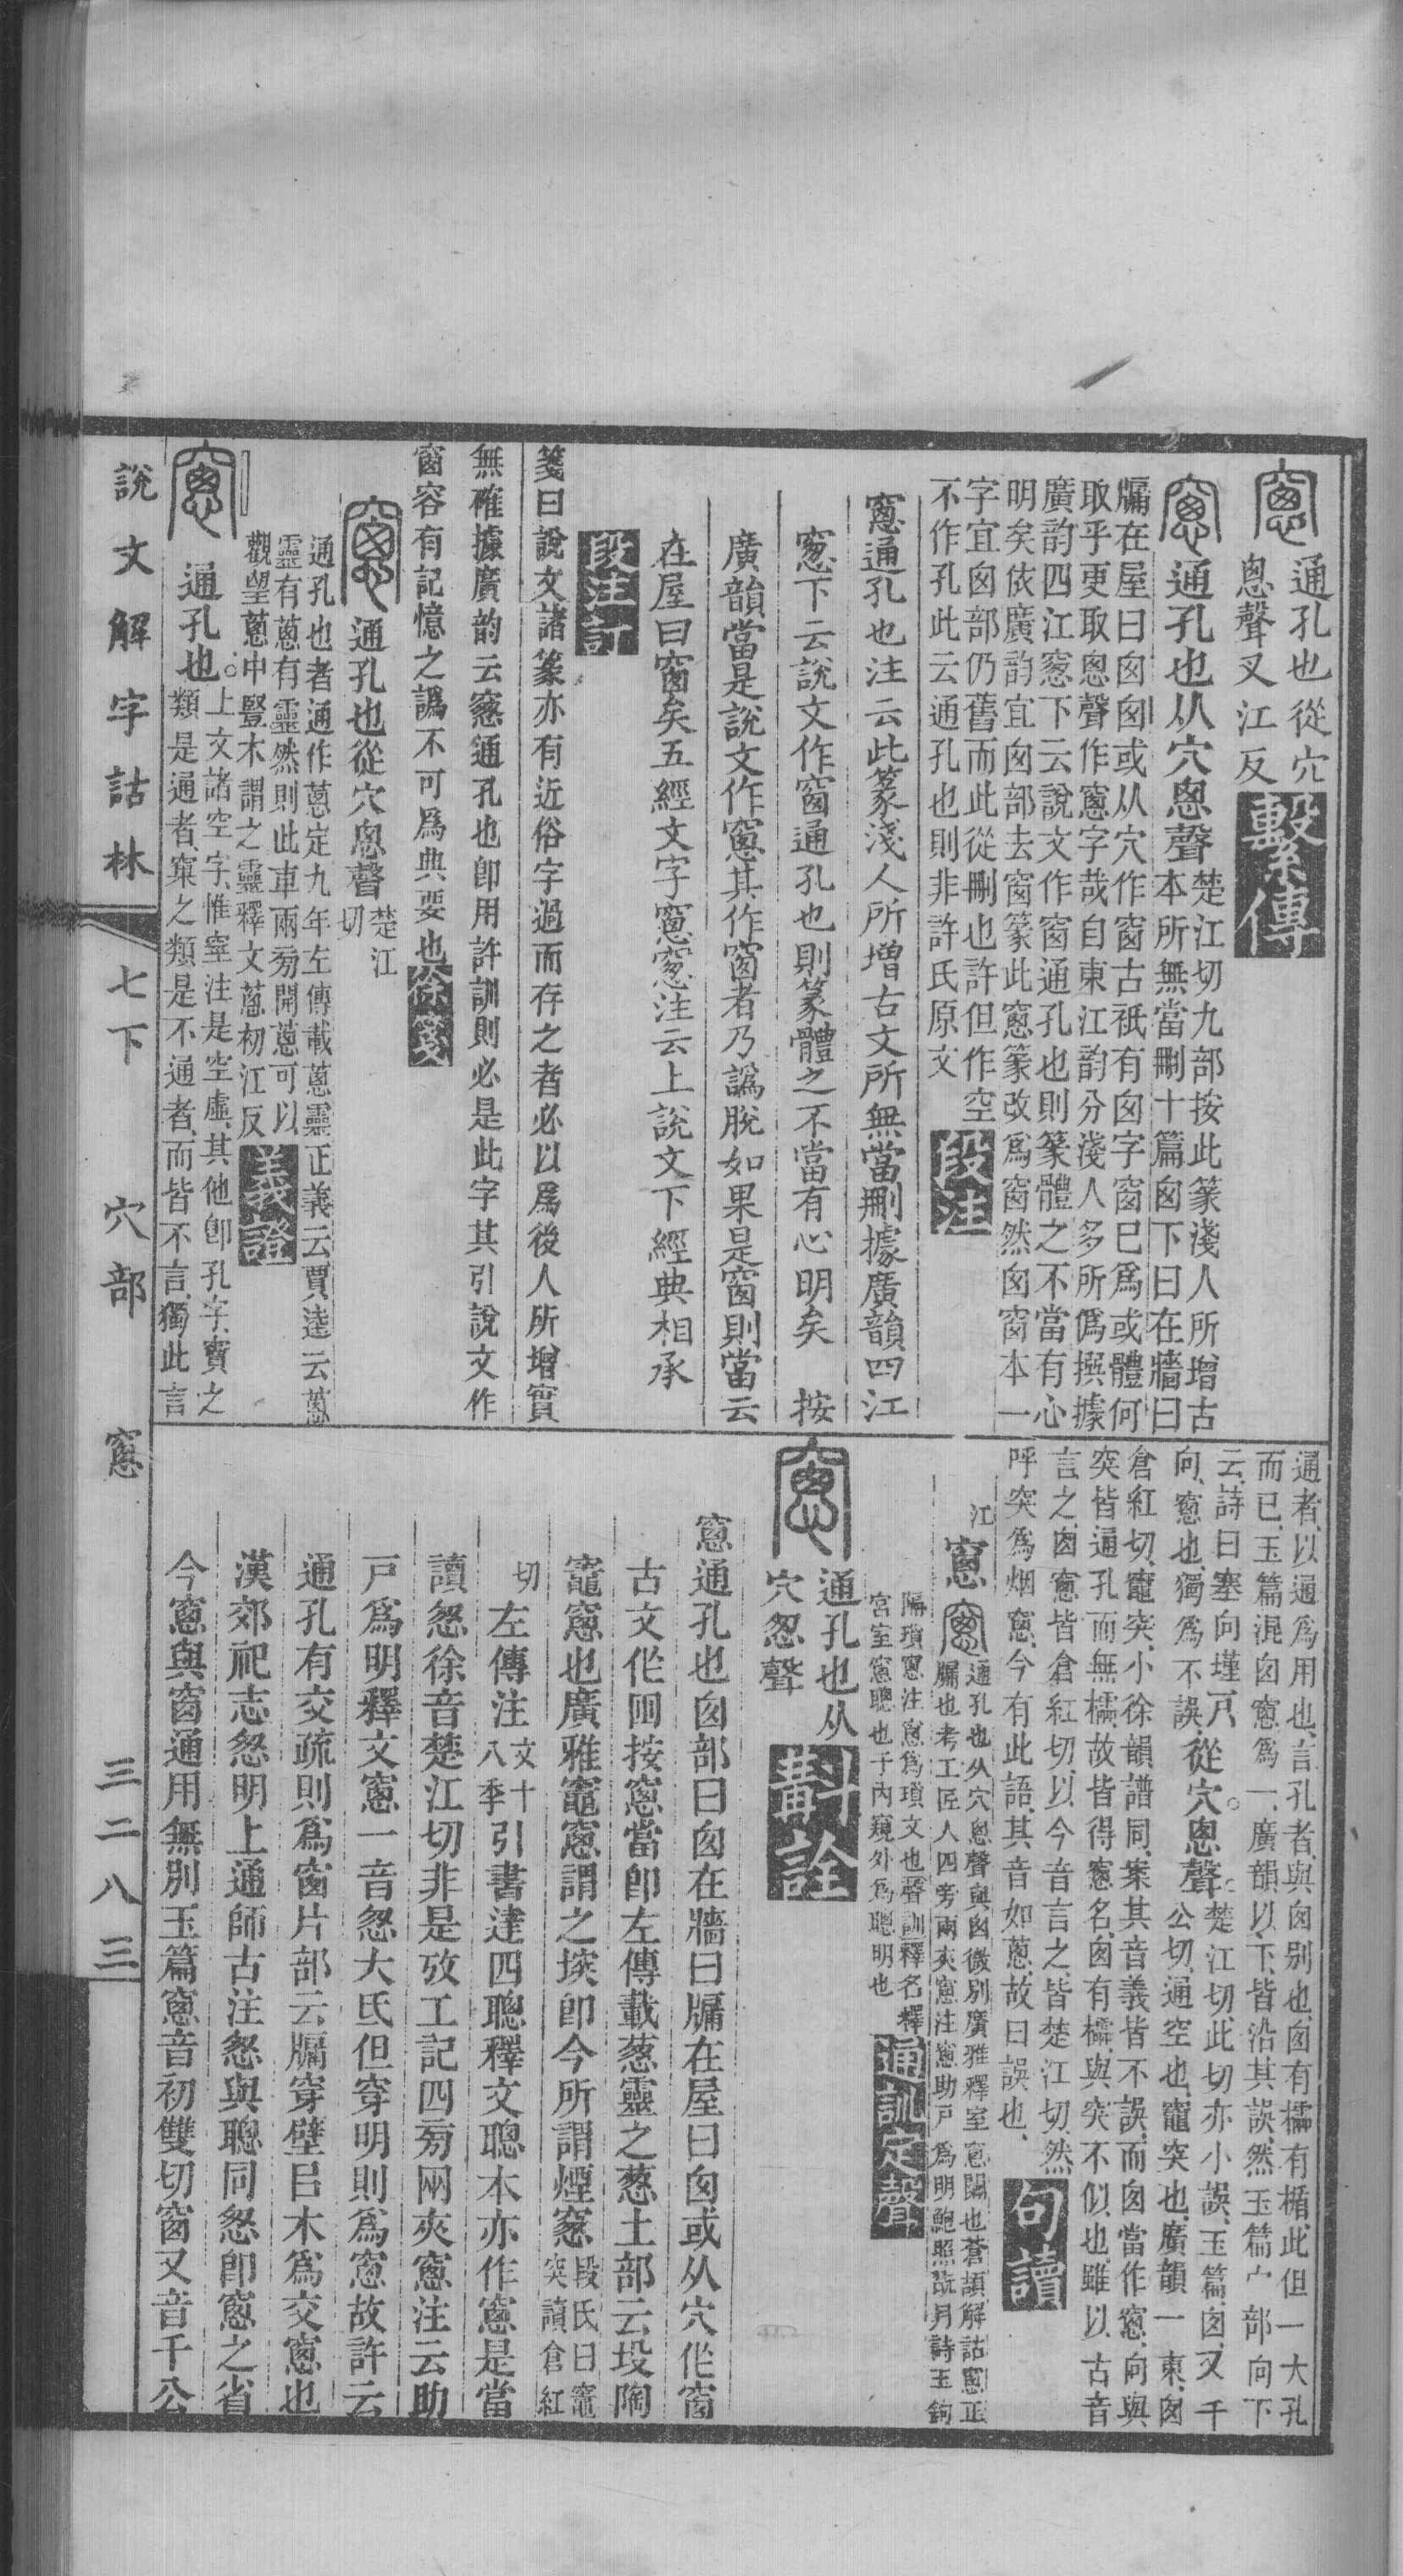 通孔也從穴
悤聲叉江反
繫傳
通孔也从穴悤聲
楚江切九部按此篆淺人所增古
本所無當刪十篇囪下曰在牆曰
牖在屋曰囪囪或从穴作窗古祇有囪字窗已爲或體何
取乎更取悤聲作窻字哉自東江韵分淺人多所僞撰據
廣韵四江窻下云說文作窗通孔也則篆體之不當有心
明矣依廣韵宜囪部去窗篆此窻篆改爲窗然囪窗本一
字宜囪部仍舊而此從刪也許但作空
不作孔此云通孔也則非許氏原文
段注
窻通孔也注云此篆淺人所增古文所無當刪據廣韻四江
窻下云說文作窗通孔也則篆體之不當有心明矣 按
廣韻當是說文作窻其作窗者乃譌脫如果是窗則當云
在屋曰窗矣五經文字窻窓注云上說文下經典相承
段注訂
箋曰說文諸篆亦有近俗字過而存之者必以爲後人所增實
無確據廣韵云窻通孔也卽用許訓則必是此字其引說文作
窗容有記憶之譌不可爲典要也
徐箋
通孔也從穴悤聲
楚江
切
通孔也者通作蔥定九年左傳載蔥靈正義云賈逵云蔥
靈有蔥有靈然則此車兩旁開蔥可以
觀望蔥中豎木謂之靈釋文蔥初江反
義證
通孔也。
上文諸空字、惟窒注是空虛、其他卽孔字、竇之
類是通者、窠之類是不通者、而皆不言、獨此言
通者、以通爲用也、言孔者、與囪別也、囪有櫺有楯、此但一大孔
而已、玉篇混囪窻爲一、廣韻以下、皆沿其誤、然玉篇宀部向下
云、詩曰塞向墐戸、從穴。悤聲。楚江切、此切亦小誤、玉篇、囪、又千
向、窻也、獨爲不誤、公切、通空也、竈突也、廣韻一東、囪
倉紅切、竈突、小徐韻譜同、案其音義、皆不誤、而囪當作窻、向與
突皆通孔而無櫺、故皆得窻名、囪有櫺、與突不似也、雖以古音
言之、囪窻皆倉紅切、以今音言之、皆楚江切、然
呼突爲烟窻、今有此語、其音如蔥、故曰誤也、
句讀
江
窻
通孔也从穴悤聲與囪微別廣雅釋室窻牖也蒼頡解詁窻正
牖也考工匠人四旁兩夾窻注窻助戸爲明鮑照翫月詩玉鉤
隔瑣窻注窻爲瑣文也聲訓釋名釋
宮室窻聰也于內窺外爲聰明也
通訓定聲
通孔也从
穴怱聲
斠詮
窻通孔也囪部曰囪在牆曰牖在屋曰囪或从穴作窗
古文作囧按窻當卽左傳載蔥靈之蔥土部云垼陶
竈窻也廣雅竈窻謂之堗卽今所謂煙窻
段氏曰竈
突讀倉紅
切
左傳注
文十
八季
引書達四聰釋文聰本亦作窻是當
讀怱徐音楚江切非是攷工記四旁兩夾窻注云助
戸爲明釋文窻一音怱大氐但穿明則爲窻故許云
通孔有交疏則爲窗片部云牖穿壁㠯木爲交窻也
漢郊祀志怱明上通師古注怱與聰同怱卽窻之省
今窻與窗通用無別玉篇窻音初雙切窗又音千公
說文解字詁林
七下
穴部
窻
三二八三